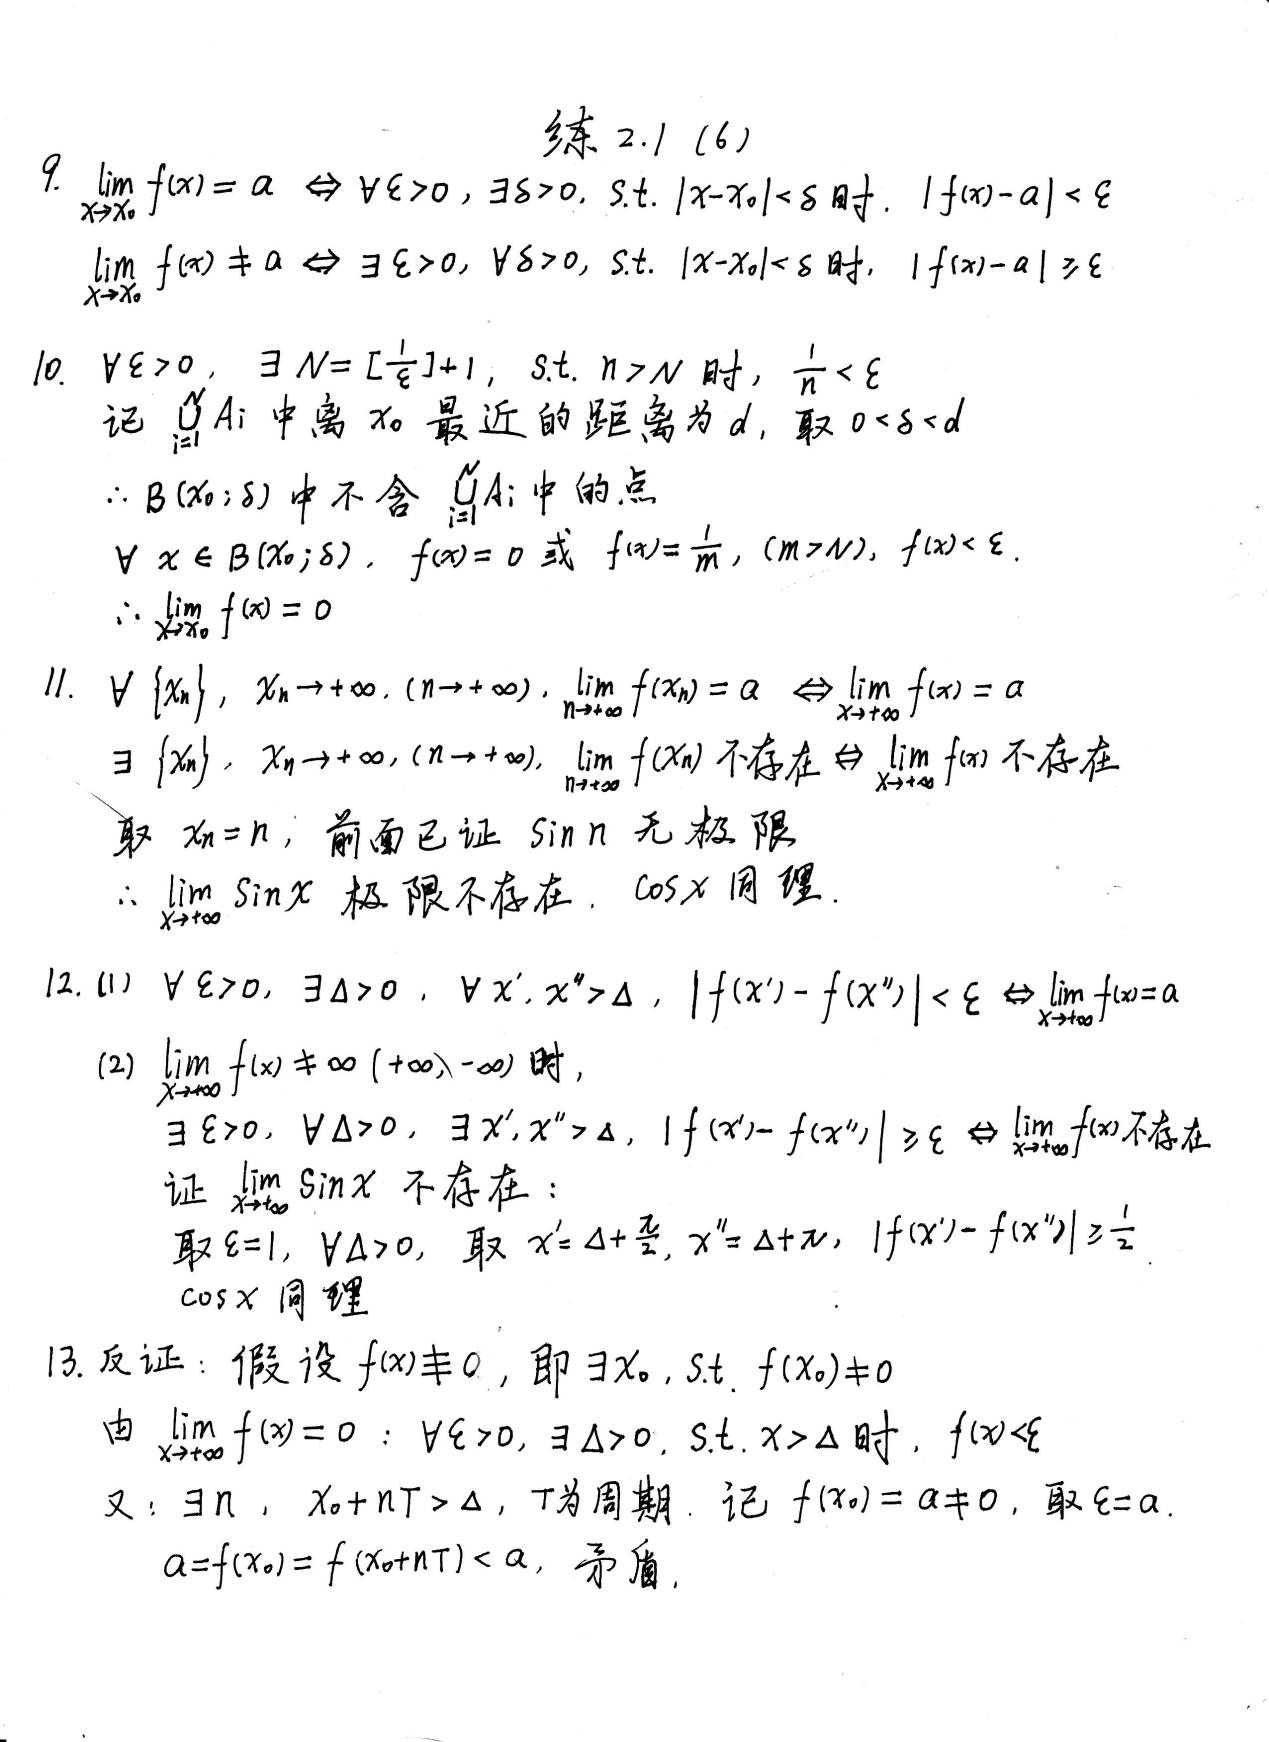 练 2.1 (6)
9. lim_{x→x₀} f(x) = a ⇔ ∀ε>0, ∃δ>0, s.t. |x-x₀|<δ 时, |f(x)-a|<ε
lim_{x→x₀} f(x) ≠ a ⇔ ∃ε>0, ∀δ>0, s.t. |x-x₀|<δ 时, |f(x)-a|≥ε
10. ∀ε>0, ∃N=[1/ε]+1, s.t. n>N 时, 1/n<ε
记 ⋃_{i=1}^{N} Ai 中离 x₀ 最近的距离为 d, 取 0<δ<d
∴ B(x₀;δ) 中不含 ⋃_{i=1}^{N} Ai 中的点
∀ x∈B(x₀;δ), f(x)=0 或 f(x)=1/m, (m>N), f(x)<ε.
∴ lim_{x→x₀} f(x) = 0
11. ∀ {xₙ}, xₙ→+∞, (n→+∞), lim_{n→+∞} f(xₙ) = a ⇔ lim_{x→+∞} f(x) = a
∃ {xₙ}, xₙ→+∞, (n→+∞), lim_{n→+∞} f(xₙ) 不存在 ⇔ lim_{x→+∞} f(x) 不存在
取 xₙ=n, 前面已证 sin n 无极限
∴ lim_{x→+∞} sin x 极限不存在, cos x 同理.
12. (1) ∀ε>0, ∃Δ>0, ∀x', x''>Δ, |f(x')-f(x'')|<ε ⇔ lim_{x→+∞} f(x)=a
(2) lim_{x→+∞} f(x) ≠ ∞ (+∞, -∞) 时,
∃ε>0, ∀Δ>0, ∃x', x''>Δ, |f(x')-f(x'')|≥ε ⇔ lim_{x→+∞} f(x) 不存在
证 lim_{x→+∞} sin x 不存在:
取 ε=1, ∀Δ>0, 取 x'=Δ+π/2, x''=Δ+π, |f(x')-f(x'')|≥1/2
cos x 同理
13. 反证: 假设 f(x)≢0, 即 ∃x₀, s.t. f(x₀)≠0
由 lim_{x→+∞} f(x)=0 : ∀ε>0, ∃Δ>0, s.t. x>Δ 时, f(x)<ε
又: ∃n, x₀+nT>Δ, T为周期. 记 f(x₀)=a≠0, 取 ε=a.
a=f(x₀)=f(x₀+nT)<a, 矛盾.